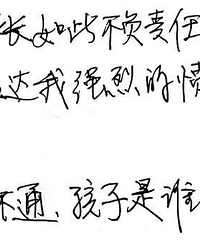 长如此不负责任
达我强烈的愤
不通，孩子是谁